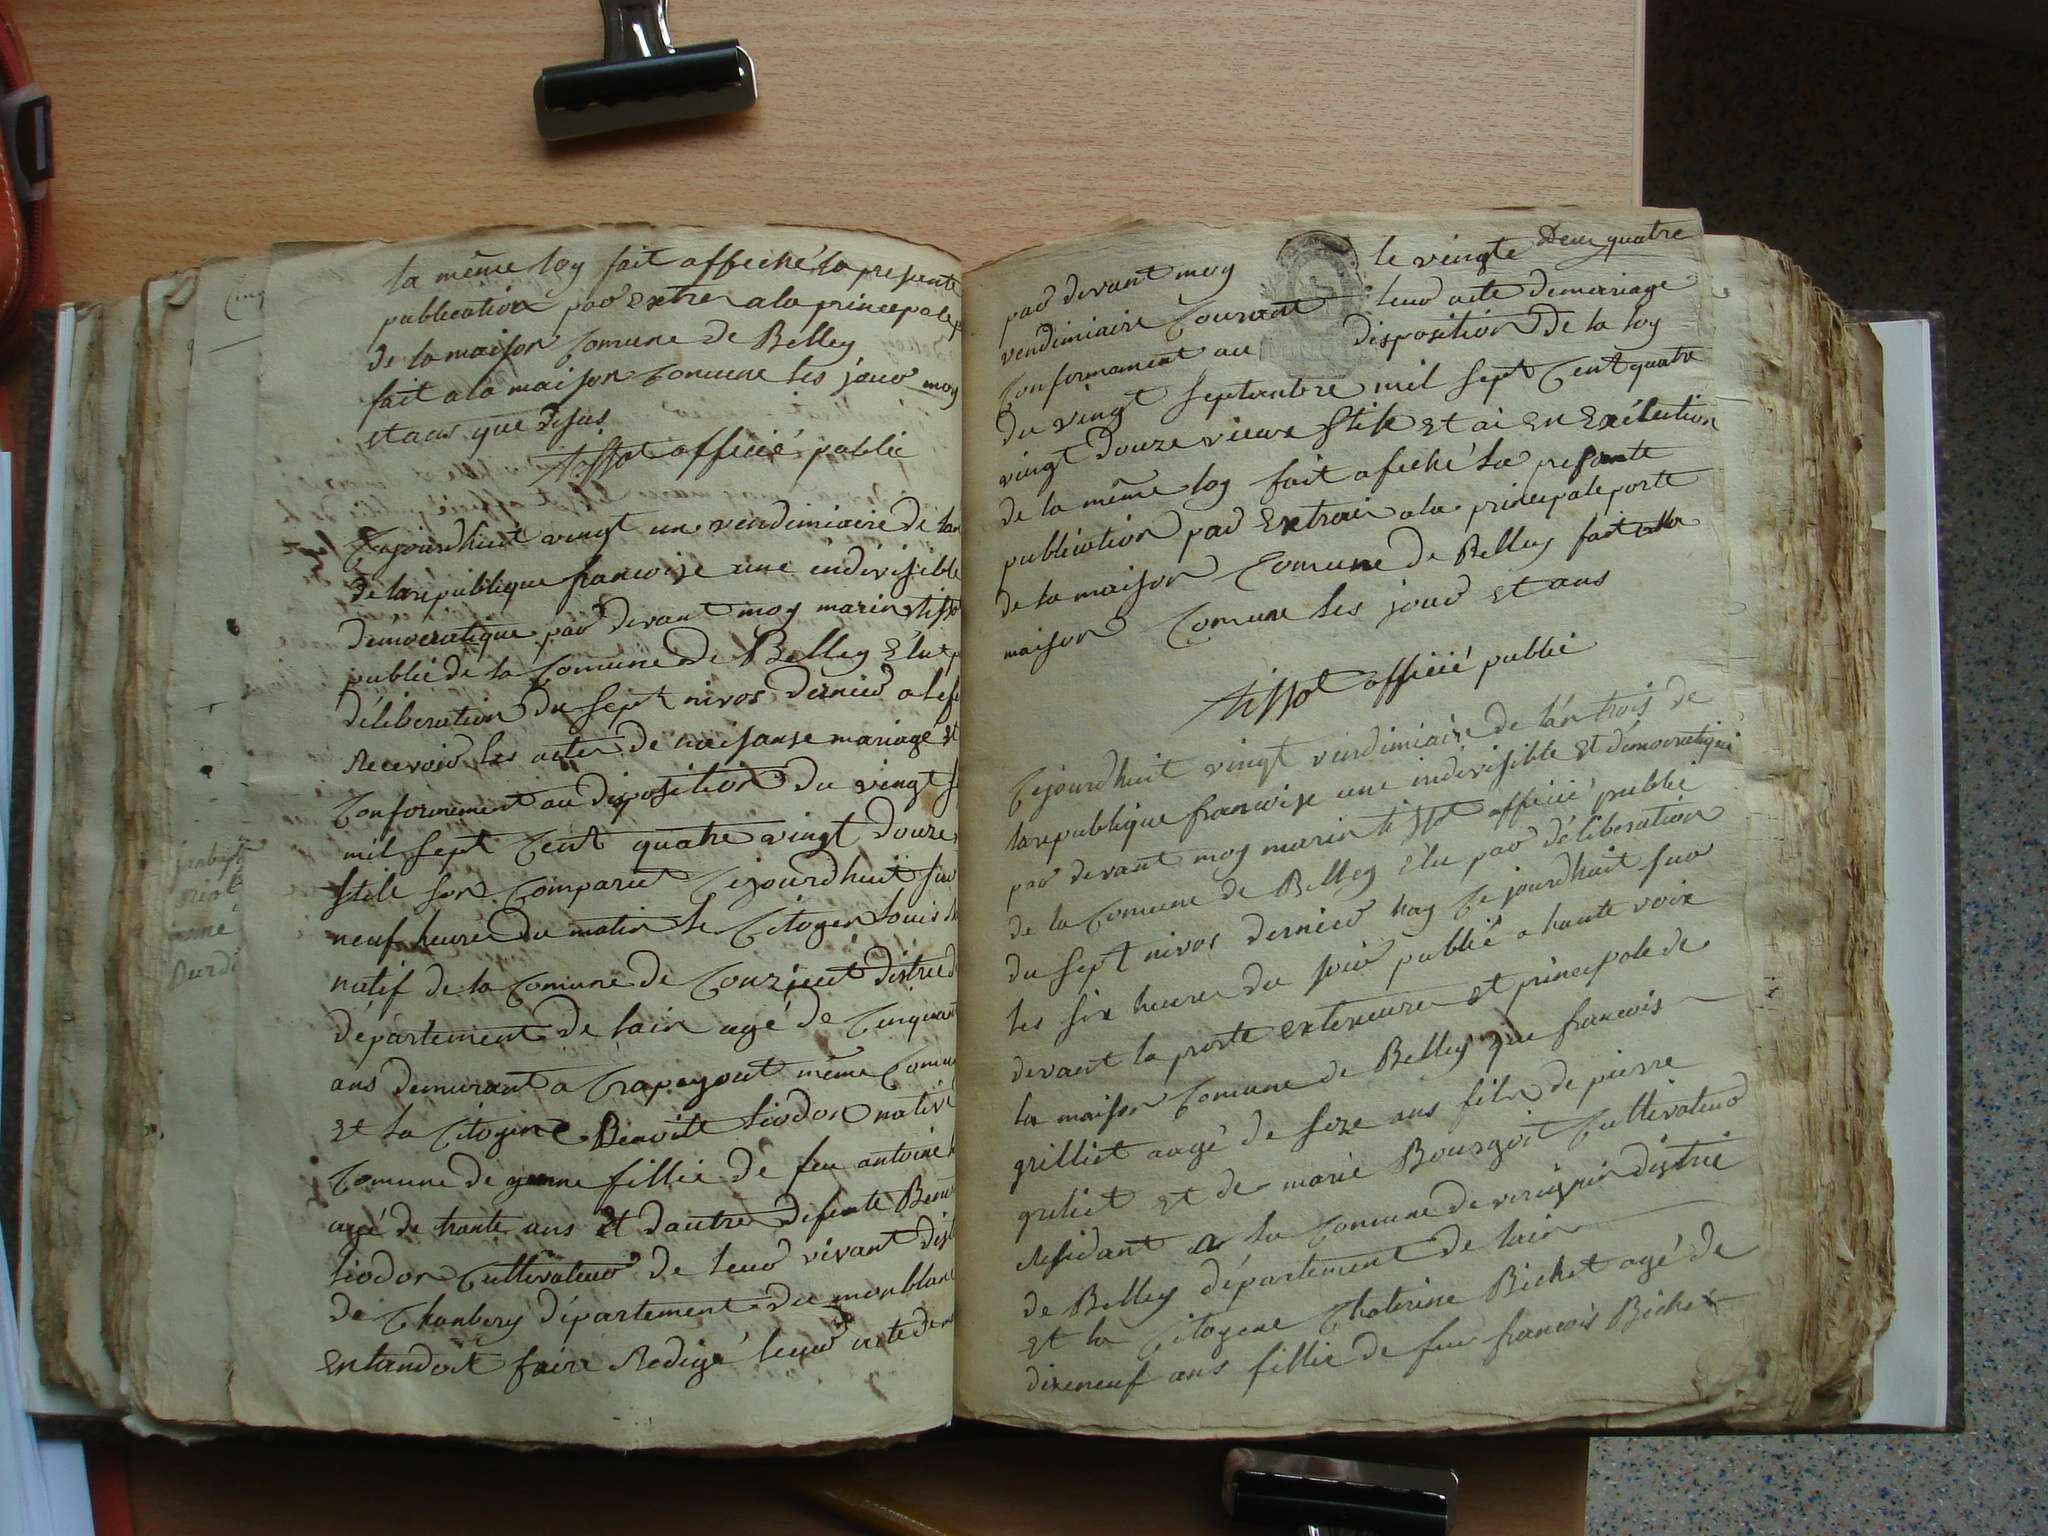 la même loy fait affeché la presente
publication par Extrer a la principale
de la maison Comune de Belley
fait a la maison Comune les jour moy
et ans que desus
tissot officié public
Cejourdhuit vingt un vendimiaire de lan
de la republique francoise une indivisible
democratique par devant moy marin tissot
public de la Comune de Belley Elut
déliberation du sept nivos dernier a lef
Recevoir les actes de naisanse mariage et
Conformement au disposition du vingt s
mil sept Cent quatre vingt douze
stile son Comparut Cejourdhuit sur
neuf heures du matin le Citoyen Louis
natif de la Comune de Conzieut district
département de lain agé de Cinquant
ans demurant a Crapeyout même Comu
et la Citoyene Benoite liodon native
Comune de yenne fillie de feu antoine
agé de trante ans et dautre defunte Benoi
liodon Cultivateur de leur vivant dist
de Chanbery département du monblanc
Entandoit faire Redigé leur acte de m
par devant moy le vingte Deux quatre
vendimiaire Courant leur acte de mariage
Conformament au disposition de la loy
du vingt septanbre mil sept Cent quatre
vingt douze vieux stile et ai En Exécution
de la même loy fait afeché la presante
publication par Extrai a la principale porte
de la maison Comune de Belley fait a la
maison Comune les jour et ans
tissot officié public
Cejourdhuit vingt vendimiaire de lan trois de
la republique francoise une indivisible et démocratique
par devant moy marin tissot officié public
de la Comune de Belley Elu par déliberation
du sept nivos dernier hay Cejourdhuit sur
les six heures du soir publié a haute voix
devant la porte exterieure et principale de
la maison Comune de Belley que francois
grilliet augé de seze ans fils de pierre
griliet et de marie Bourgoit Cultivateur
Residant a la Comune de virignin distric
de Belley département de lain
et la Citoyene Chaterine Bichet agé de
dixeneuf ans fillie de feu francois Bichet